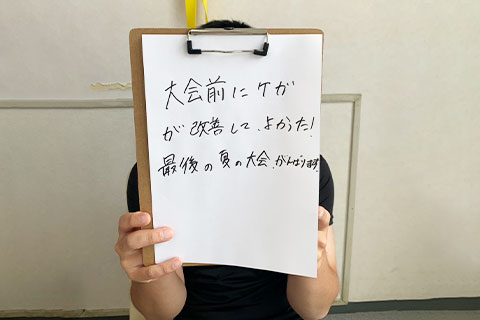 大会前にケガ
が改善して、よかった!
最後の夏の大会、がんばります。